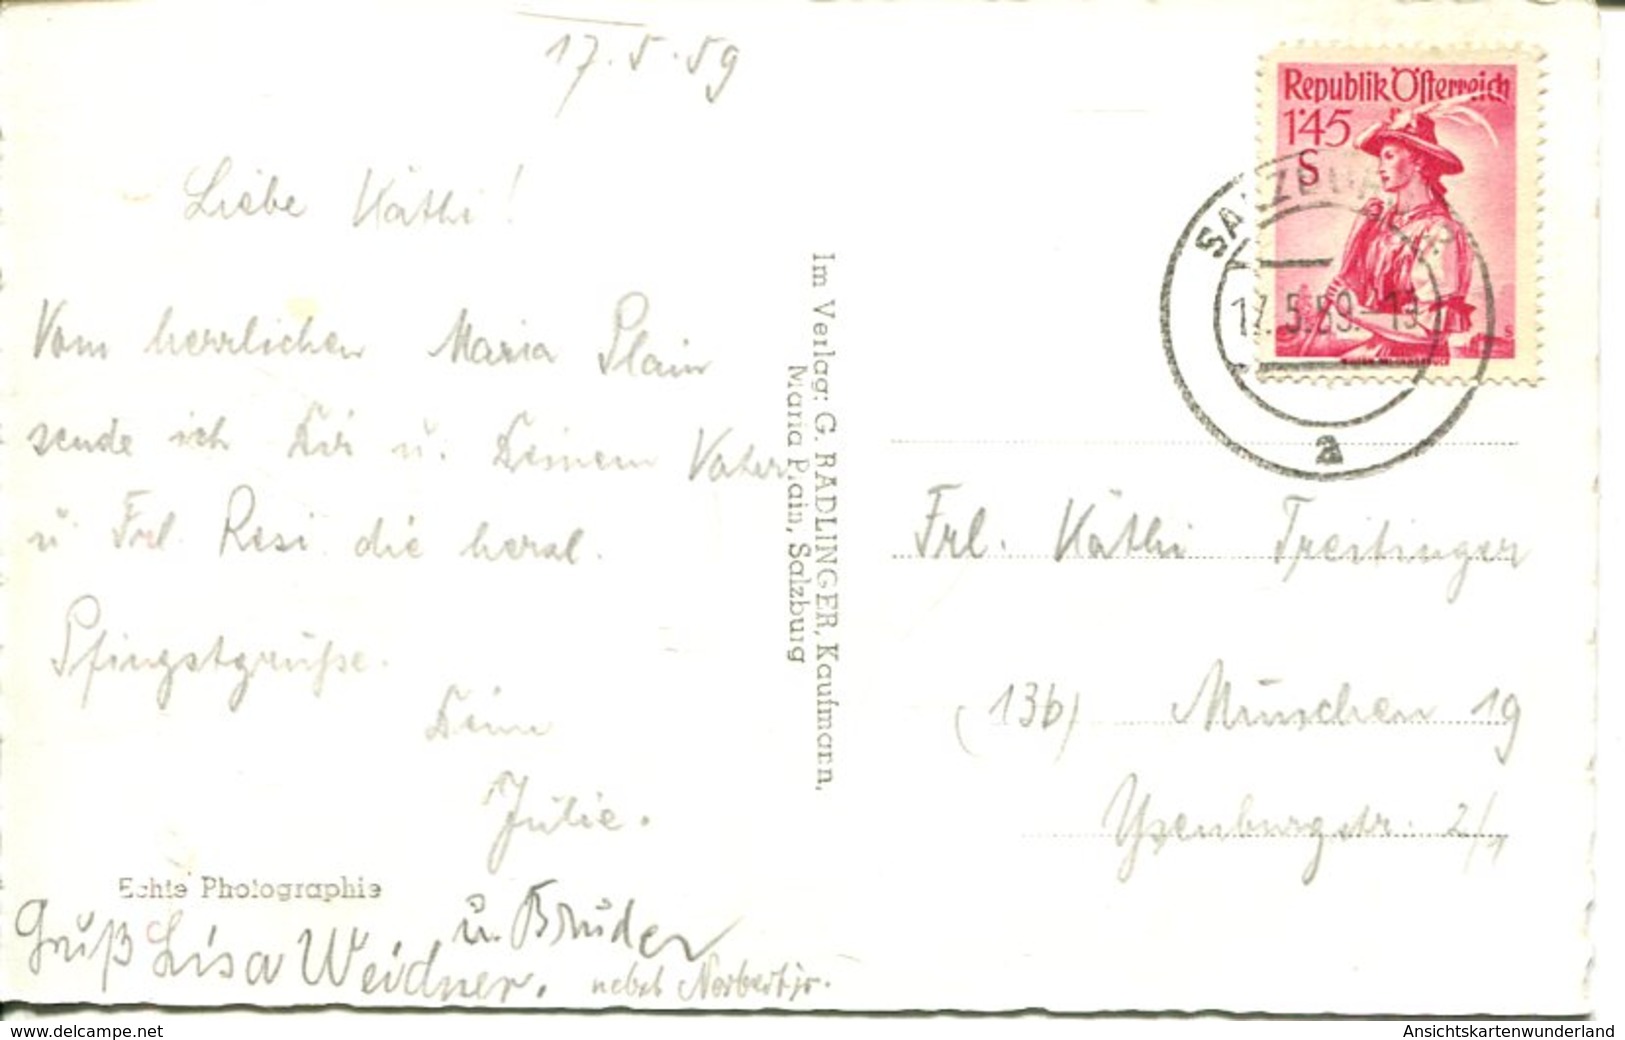 17.5.59
Liebe Käthi!
Vom herrlichen Maria Plain
sende ich Dir u. Deinem Vater
u. Frl. Resi die herzl.
Pfingstgrüße.
Deine
Julie.
Echte Photographie
Gruß Lisa Weidner.
u. Bruder
nebst Norbert jr.
Im Verlag: G. RADLINGER, Kaufmann,
Maria Plain, Salzburg
Republik Österreich
1'45
S
SALZBURG
17.5.59.-13
a
Frl. Käthi Treitinger
(13b) München 19
Ysenburgstr. 2/1
www.delcampe.net
Ansichtskartenwunderland